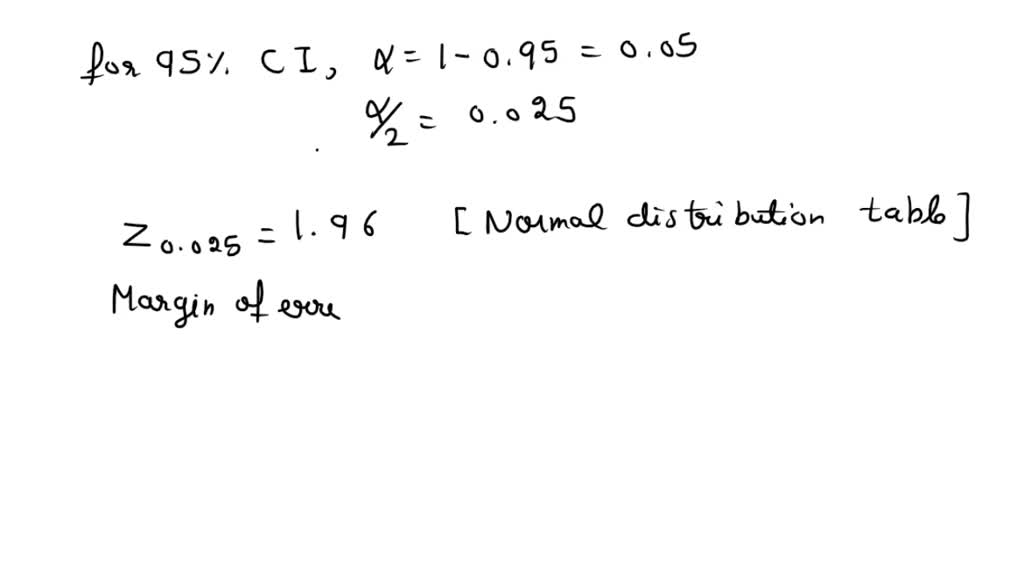 for 95% CI, α = 1 - 0.95 = 0.05
α/2 = 0.025
Z0.025 = 1.96 [Normal distribution table]
Margin of erro